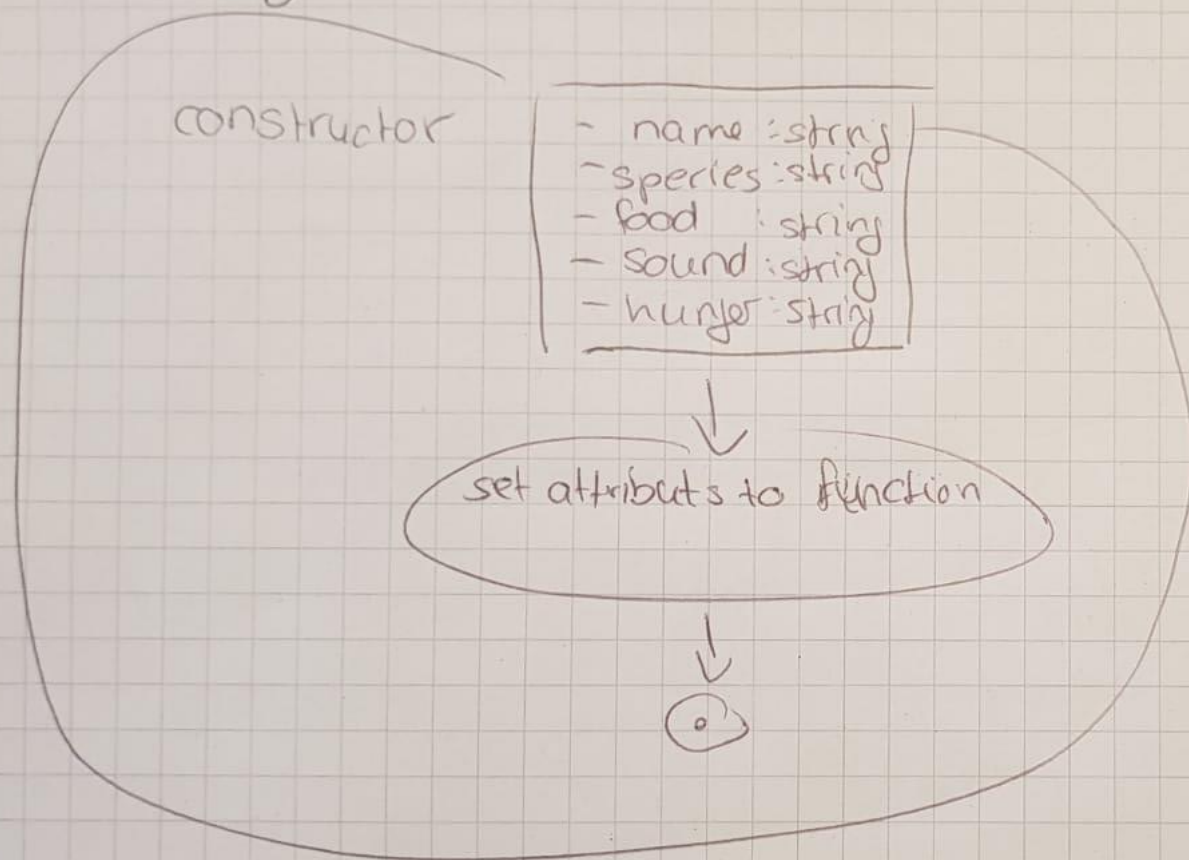 constructor
- name : strng
- species : string
- food : string
- sound : string
- hunger : string
set attributs to function